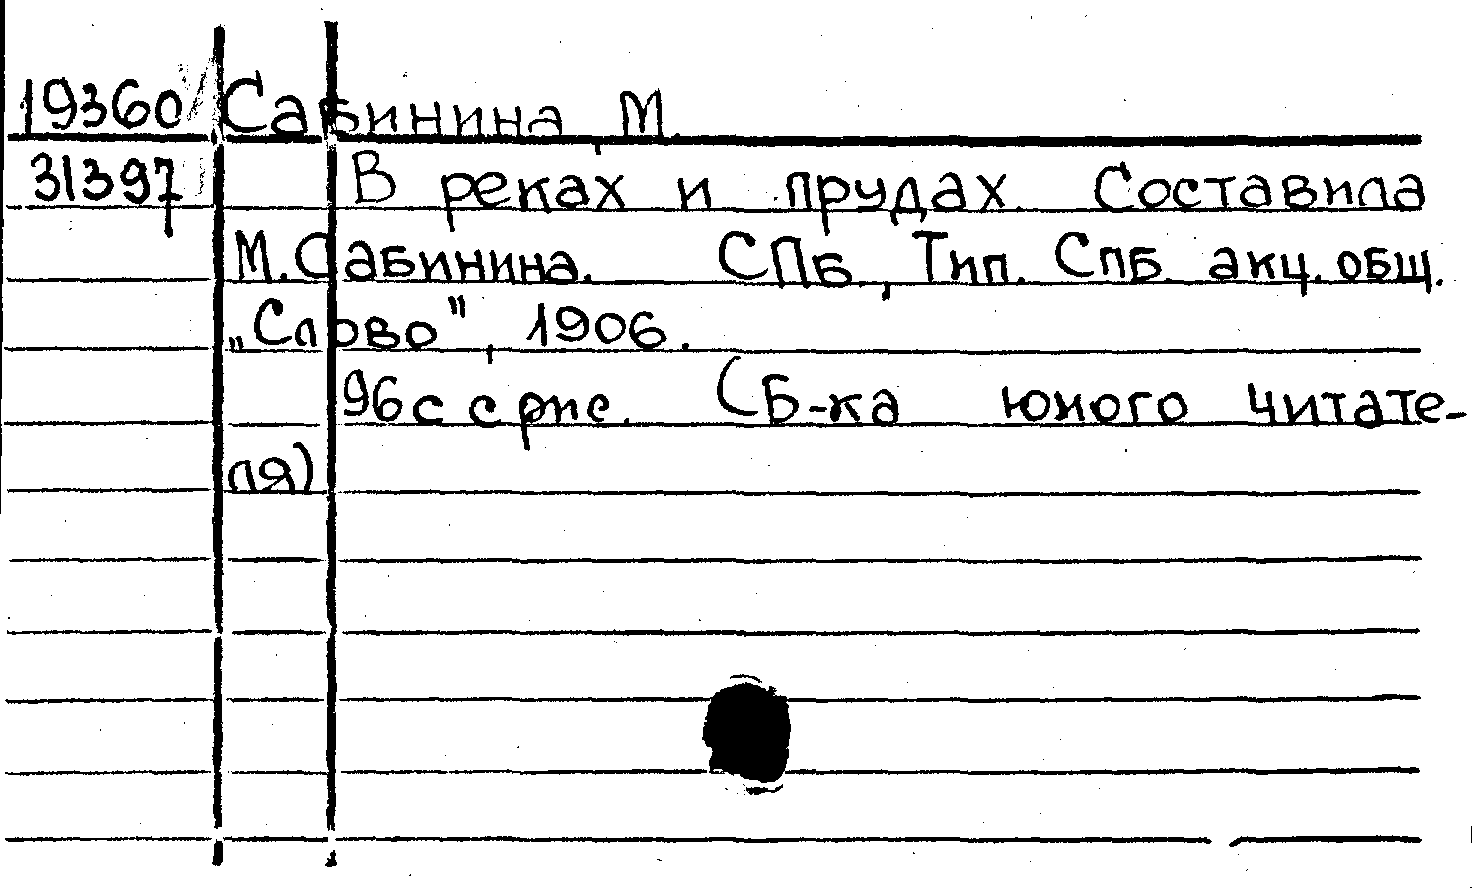 19360 Сабинина, М.
31397 В реках и прудах. Составила
М. Сабинина. СПБ, Тип. Спб. акц. общ.
„Слово", 1906.
96 с с рис. (Б-ка юного читате-
ля)